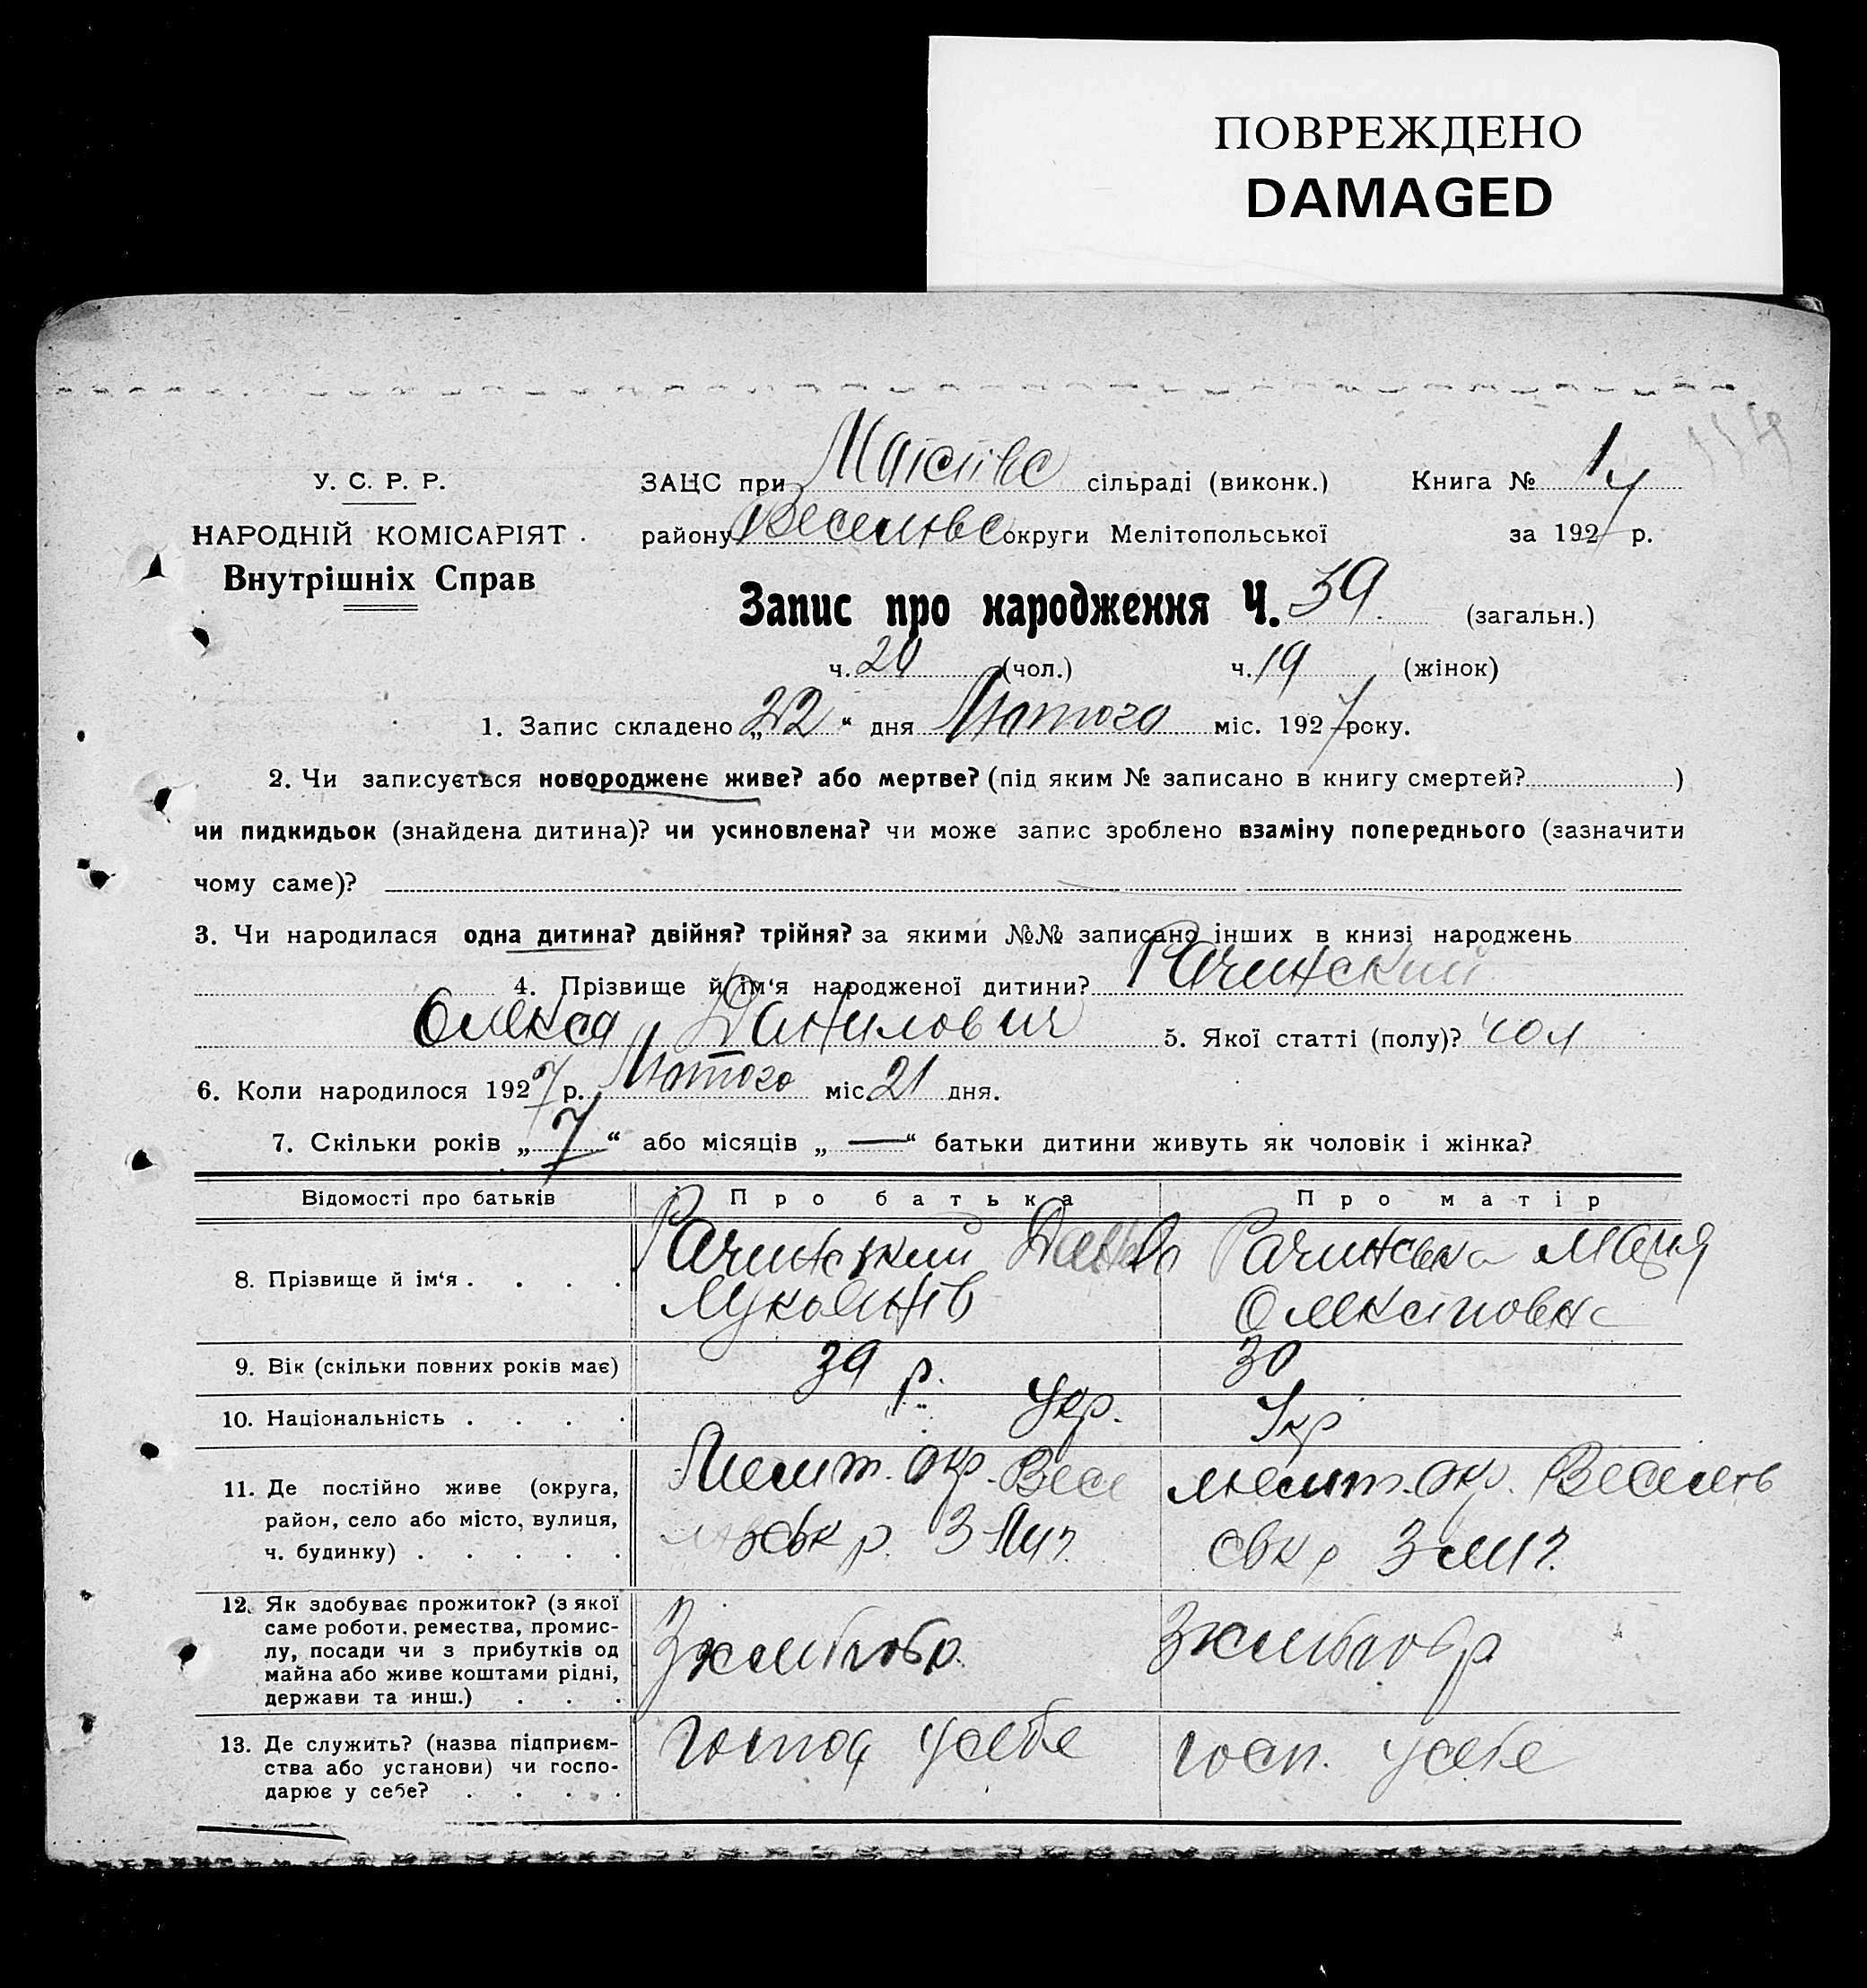 ПОВРЕЖДЕНО
DAMAGED
У. С. Р. Р.
НАРОДНІЙ КОМІСАРІЯТ
Внутрішніх Справ
ЗАЦС при сільраді (виконк.) Книга № 1
району Веселовс округи Мелітопольської за 1927 р.
Запис про народження Ч. 39 (загальн.)
ч. 20 (чол.) ч. 19 (жінок)
1. Запис складено „22" дня Лютого міс. 1927 року.
2. Чи записується новороджене живе? або мертве? (під яким № записано в книгу смертей? )
чи пидкидьок (знайдена дитина)? чи усиновлена? чи може запис зроблено взаміну попереднього (зазначити
чому саме)?
3. Чи народилася одна дитина? двійня? трійня? за якими №№ записано інших в книзі народжень
4. Прізвище й ім'я народженої дитини? Рачинский
Олекса Данилович 5. Якої статті (полу)? чол
6. Коли народилося 1927 р. Лютого міс 21 дня.
7. Скільки років „7" або місяців „—" батьки дитини живуть як чоловік і жінка?
Відомості про батьків Про батька Про матір
8. Прізвище й ім'я . . . . Рачинский Данило Рачинська Марія
Лукьянів Олексіповна
9. Вік (скільки повних років має) 39 р. 30
10. Національність . . . . Укр. Укр
11. Де постійно живе (округа, район, село або місто, вулиця, ч. будинку) . . . . . Мелит. окр. Весе
р. Мелит. окр. Весел
р
12. Як здобуває прожиток? (з якої
саме роботи, ремества, промис-
лу, посади чи з прибутків од
майна або живе коштами рідні,
держави та инш.) . . . Зхлибороб. Зхлибороб
13. Де служить? (назва підприєм-
ства або установи) чи госпо-
дарює у себе? . . . . Господ усебе госп. усебе